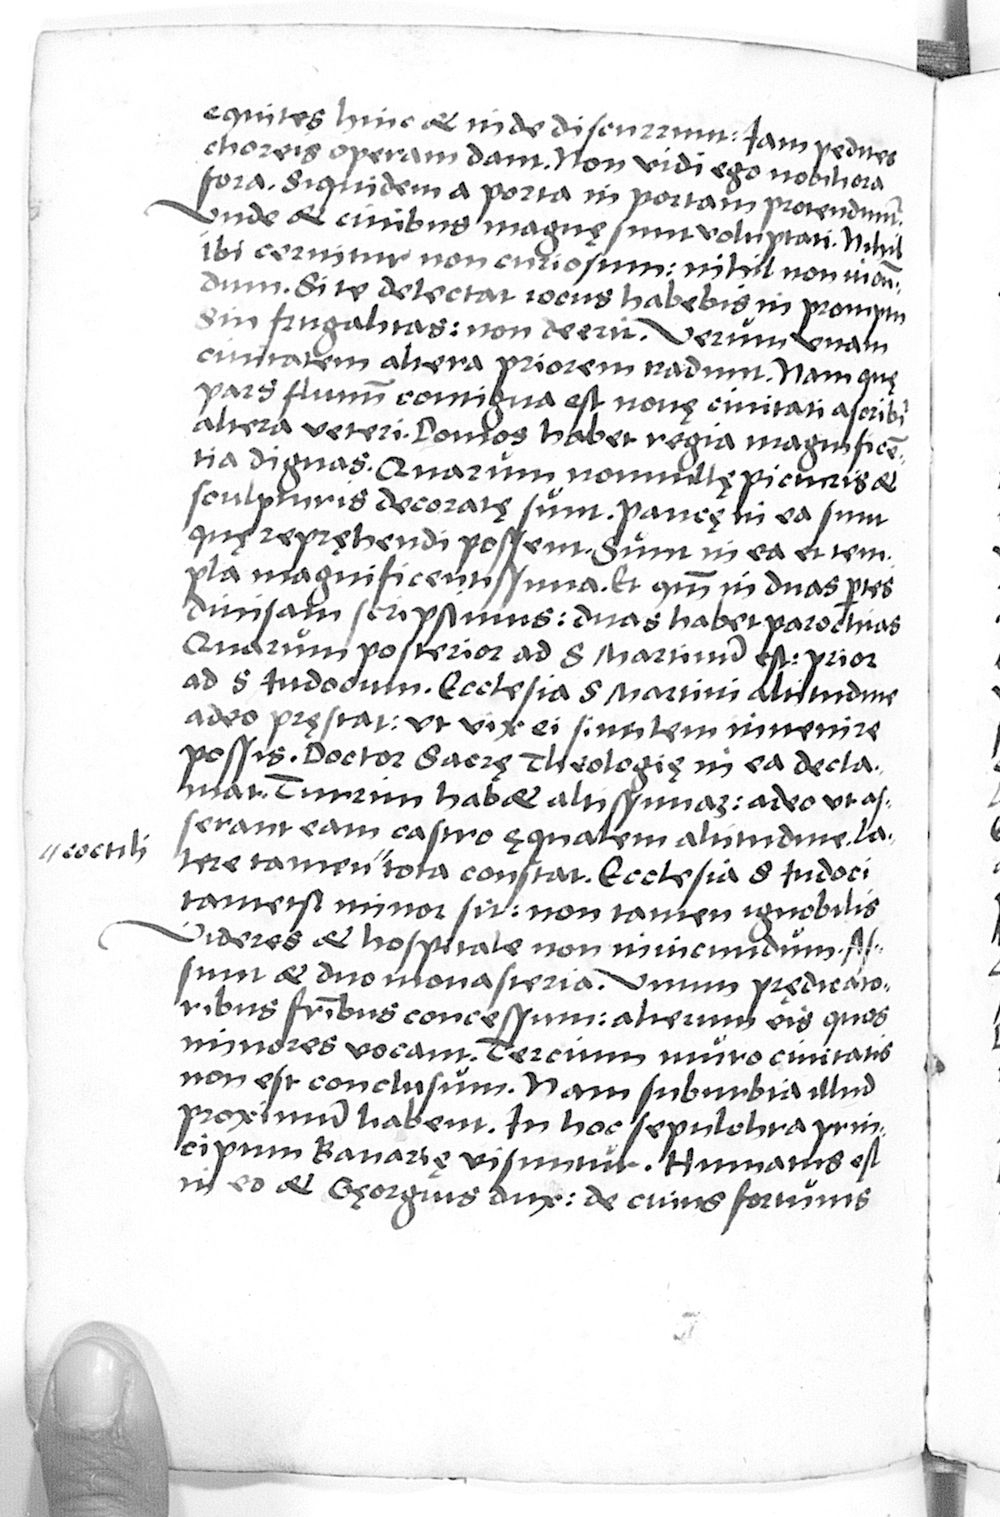 equites hinc & inde discurrunt: Iam pedites
choreis operam dant. Non vidi ego nobiliora
fora. Siquidem a porta in portam protendunt̃.
Vnde & ciuibus magnę sunt voluptati. Nihil
ibi cernitur non curiosum: nihil non iucũ-
dum. Si te delectat iocus habebis in promptu
Sin frugalitas: non deerit. Verum vnam
ciuitatem altera priorem tradunt. Nam quę
pars flumini contigua est nouę ciuitati ascribit̃
altera veteri. Domos habet regia magnificẽ-
tia dignas. Quarum nonnullę picturis &
sculpturis decoratę sunt. Paucę in ea sunt
quę repręhendi possent. Sunt in ea et tem-
pla magnificentissima. Et qm̃ in duas ptes
diuisam scripsimus: duas habet parochias
Quarum posterior ad S Martinũ est: prior
ad S Iudocum. Ecclesia S Martini altitudine
adeo pręstat: vt vix ei similem inuenire
possis. Doctor Sacrę Theologię in ea decla-
mat. Turrim hab& altissimaʒ: adeo vt as-
serant eam castro ęqualem altitudine. La-
"coctili
tere tamen" tota constat. Ecclesia S Iudoci
tametsi minor sit: non tamen ignobilis
Videres & hospitale non iniucundum. As-
sunt & duo monasteria. Vnum prędicato-
ribus fr̃ibus concessum: alterum eis quos
minores vocant. Tercium muro ciuitatis
non est conclusum. Nam suburbia illud
proximũ habent. In hoc sepulchra prin-
cipum Bauarię visuntur. Humatus est
in eo & Gęorgius dux: de cuius fortunis